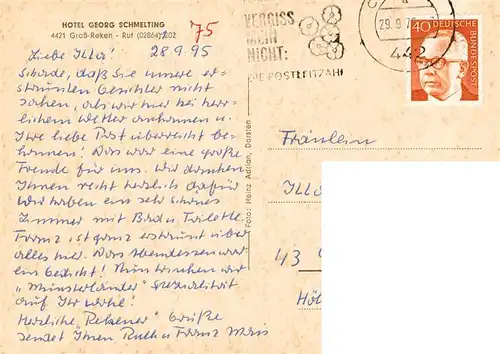 HOTEL GEORG SCHMELTING
4421 Groß-Reken - Ruf (02864) 202
75
Liebe Illa! 28.9.95
Schade, daß Sie unsere er-
staunten Gesichter nicht
sahen, als wir hier bei herr-
lichem Wetter ankamen u.
Ihre liebe Post überreicht be-
kamen! Das war eine große
Freude für uns. Wir danken
Ihnen recht herzlich dafür
Wir haben ein sehr schönes
Zimmer mit Bad u Toilette.
Franz ist ganz erstaunt über
alles hier. Das Abendessen war
ein Gedicht! Nun trinken wir
"Münsterländer" Spezialität
auf Ihr Wohl!
Herzliche "Rekener" Grüße
sendet Ihnen Ruth u Franz
Foto: Heinz Adrian, Dorsten
VERGISS
MEIN
NICHT:
DIE POSTLEITZAHL
29.9.7
442
40
DEUTSCHE
BUNDESPOST
Fräulein
Illa
43